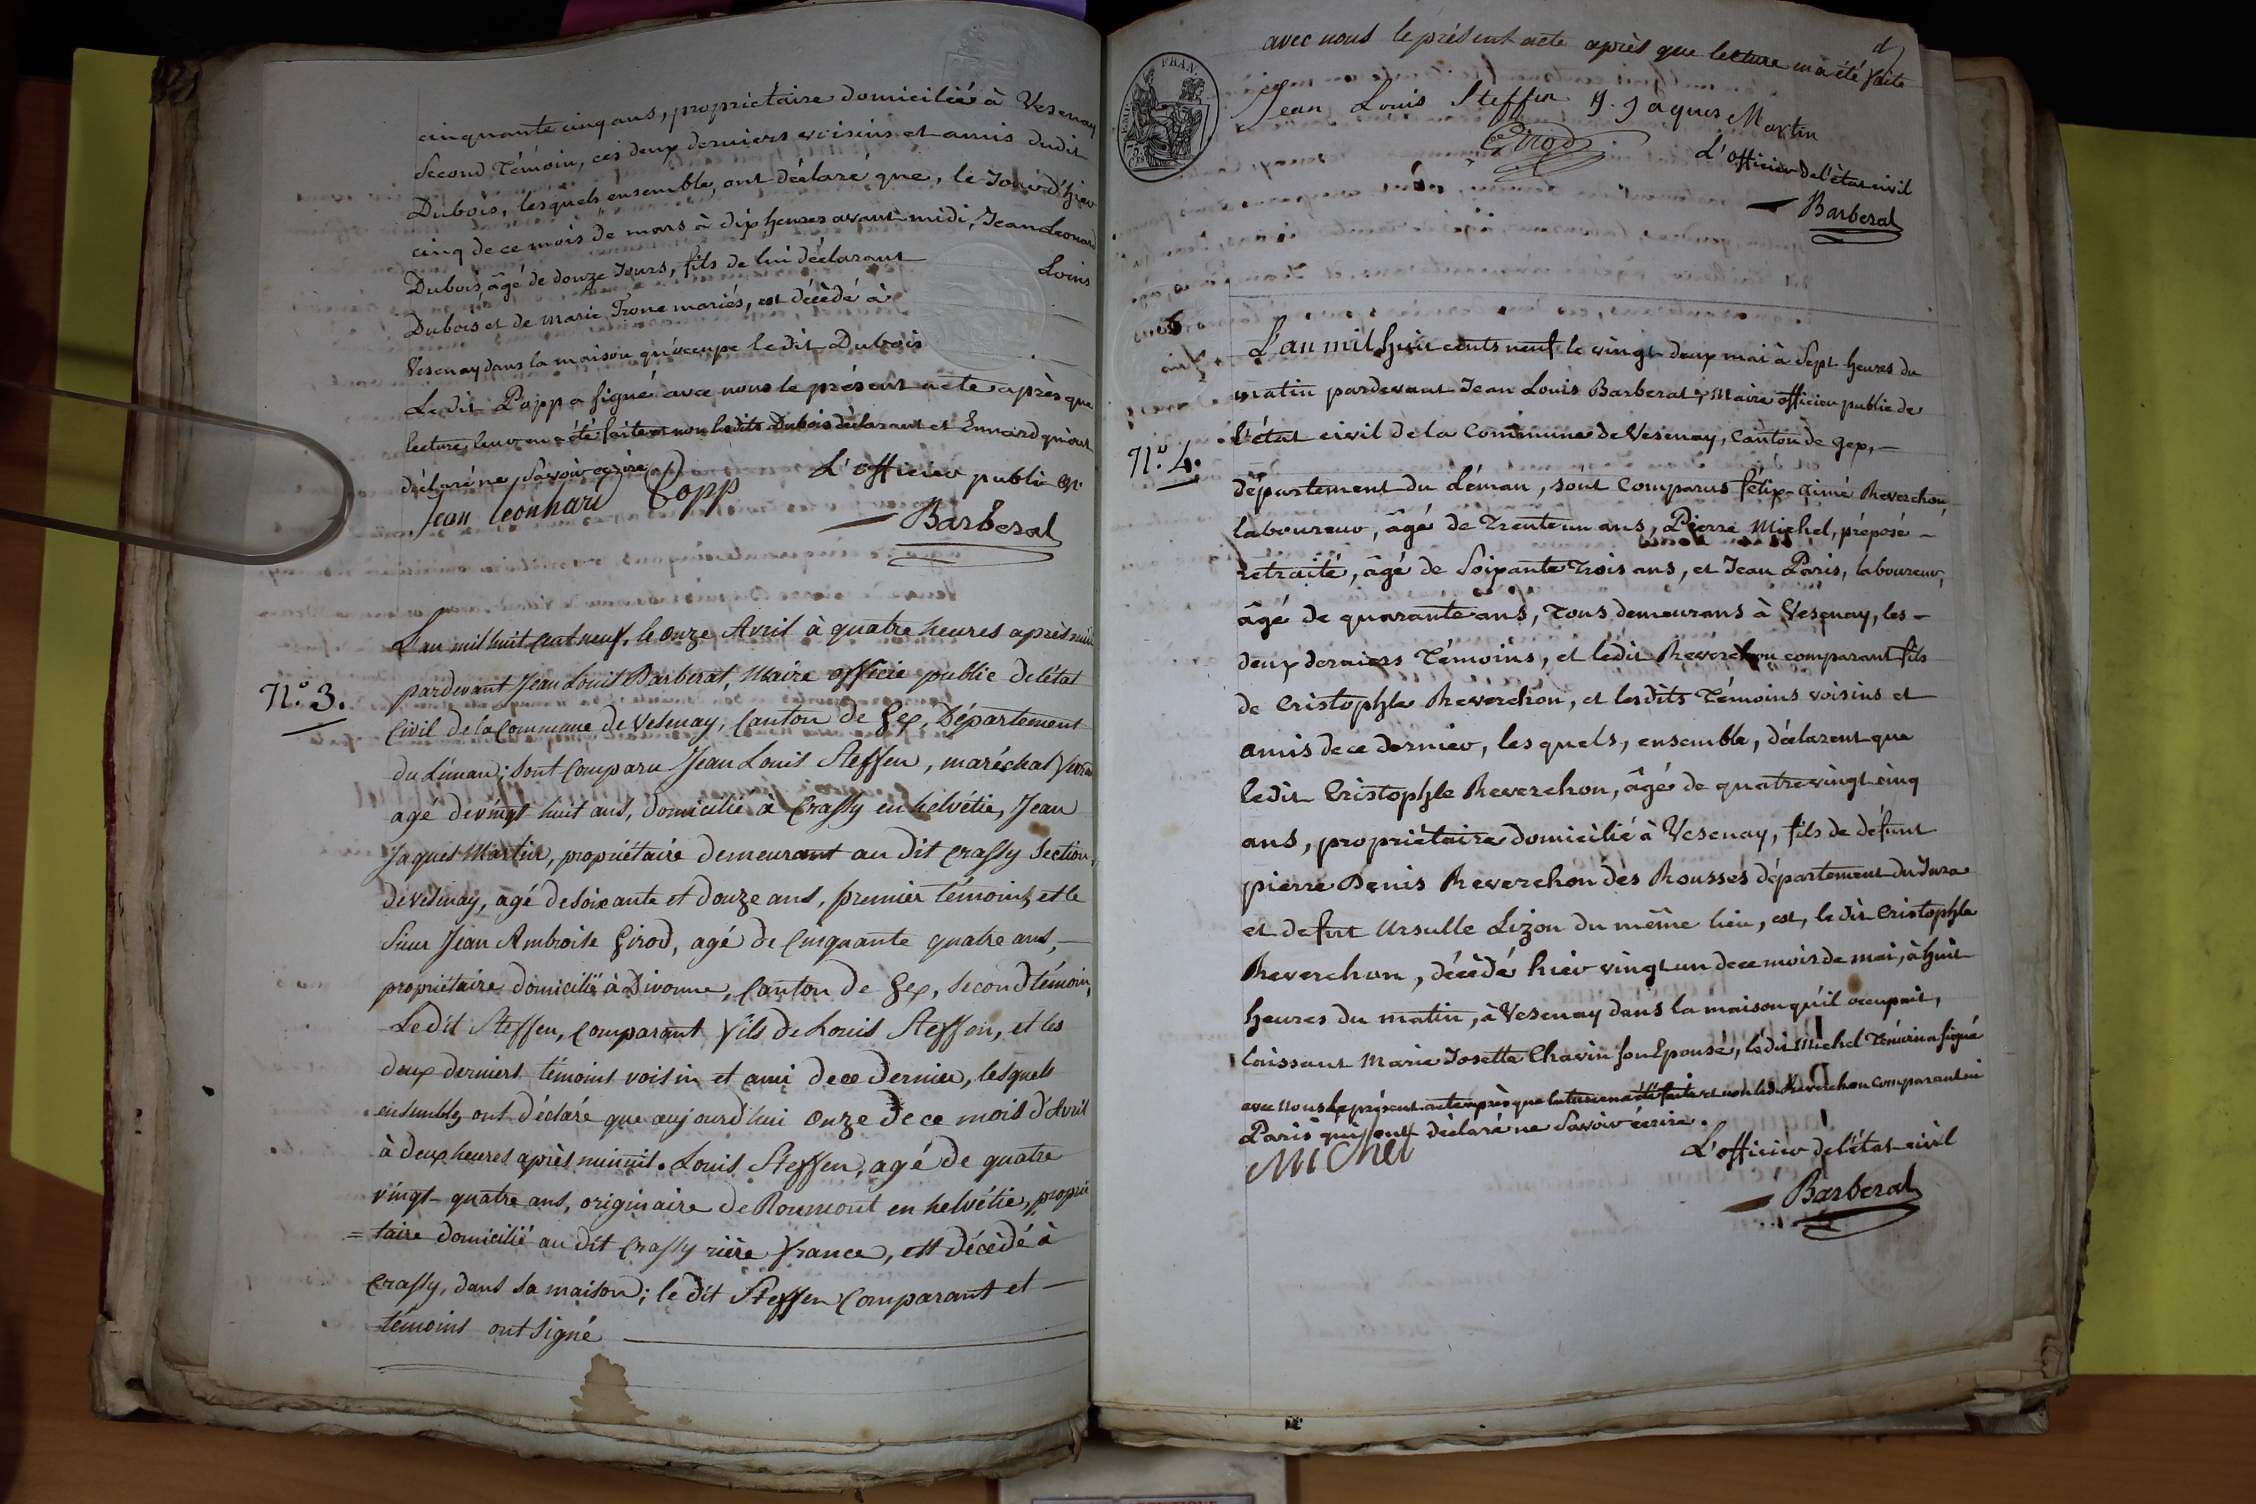 cinquante cinq ans, propriétaire domicilié à Vesenay
Second Témoin, ces deux derniers voisins et amis dudit
Dubois, lesquels ensemble, ont déclaré que, le Jour d'hier
cinq de ce mois de mars à dix heures avant midi, Jean Leonard
Dubois, âgé de douze Jours, fils de lui déclarant Louis
Dubois et de marie Trone mariés, est décèdé à
Vesenay dans la maison qu'occupe ledit Dubois
Le dit Popp a signé avec nous le présent acte après que
lecture leur en a été faite et non lesdits Dubois déclarant et Ennard qui ont
déclaré ne Savoir ecrire
Jean Leonhard Popp L'officier public
Barberat
N.º 3.
L'an mil huit cent neuf, le onze Avril à quatre heures après midi
pardevant Jean Louis Barberat, Maire officie public de l'état
Civil de la Commune de Vesenay, Canton de Gex, Département
du Léman; Sont Comparu Jean Louis Steffen, maréchal ferra
agé de vingt huit ans, domicilié à Crassy en helvétie, Jean
Jaques Martin, propriétaire demeurant au dit Crassy Section
de Vesenay, agé de soixante et douze ans, premier témoins, et le
Sieur Jean Ambroise Girod, agé de Cinquante quatre ans, —
propriétaire domicilié à Divonne, Canton de Gex, Second témoin,
Le dit Steffen, Comparant fils de Louis Steffen, et les
deux derniers témoins voisin et ami de ce dernier, lesquels
ensembles ont déclaré que aujourd'hui onze de ce mois d'Avril
à deux heures après minuit. Louis Steffen, agé de quatre
vingt-quatre ans, originaire de Romont en helvétie, proprié
= taire domicilié au dit Crassy rière france, est décédé à
Crassy, dans sa maison; le dit Steffen Comparant et —
témoins ont signé
avec nous le présent acte après que lecture en a été faite
Jean Louis Steffen J. Jaques Martin
Girod
L'officier de l'état civil
Barberat
N.º 4.
L'an mil huit cents neuf le vingt-deux mai à Sept heures du
matin pardevant Jean Louis Barberat, Maire officier public de
l'état civil de la Commune de Vesenay, Canton de gex, —
département du Léman, sont Comparus félix-aimé Reverchon,
laboureur, âgé de Trente un ans, Pierre Michel, préposé —
retraité, âgé de Soixante Trois ans, et Jean Paris, laboureur,
âgé de quarante ans, Tous demeurans à Vesenay, les —
deux derniers Témoins, et ledit Reverchon comparant fils
de Cristophle Reverchon, et lesdits Témoins voisins et
amis de ce dernier, lesquels, ensemble, déclarent que
ledit Cristophle Reverchon, âgé de quatre vingt cinq
ans, propriétaire domicilié à Vesenay, fils de défunt
pierre Denis Reverchon des Rousses département du Jura
et defunt Ursulle Lizon du même lieu, est, le dit Cristophle
Reverchon, décèdé hier vingt un de ce mois de mai, à huit
heures du matin, à Vesenay dans la maison qu'il occupait,
laissant Marie Josette Chavin son Epouse, ledit Michel Témoin a signé
avec nous le présent acte après que lecture en a été faite et non led. Reverchon comparant ni
Paris qui ont déclaré ne Savoir écrire.
Michel
L'officier de l'état-civil
Barberat